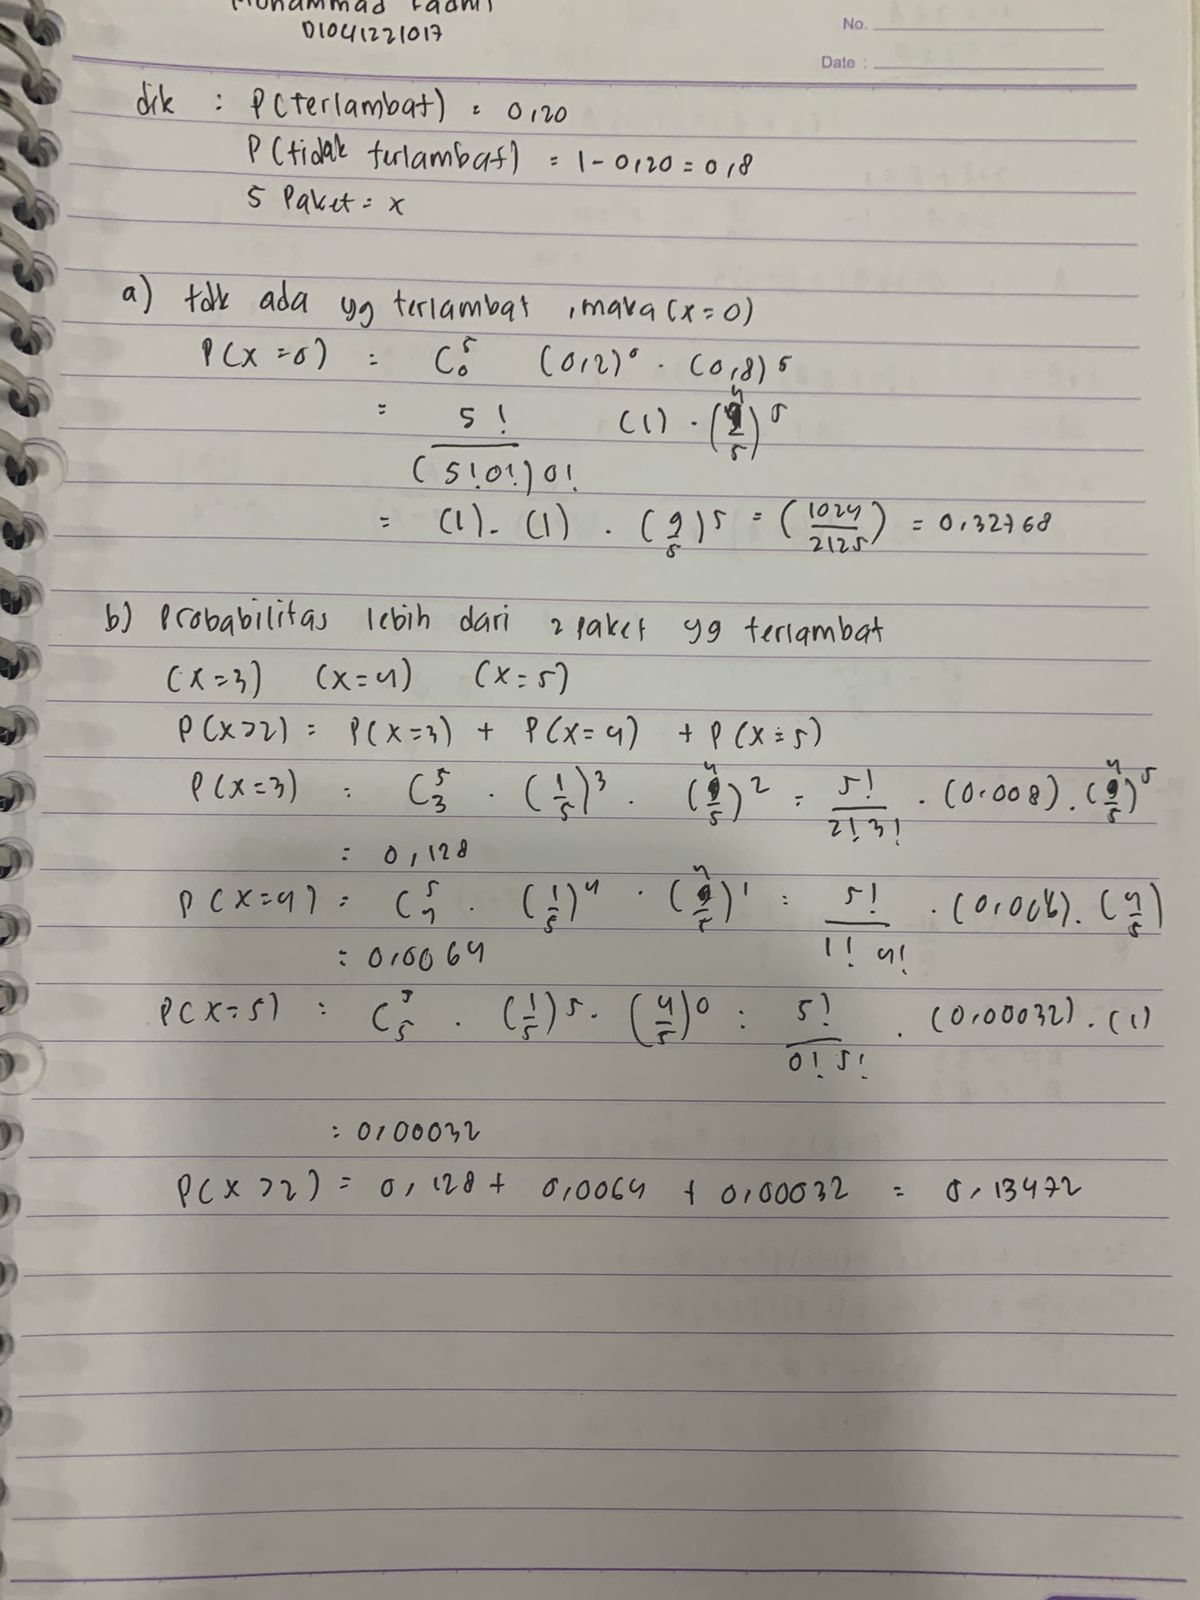 D1041221017
No.
Date :
dik : P(terlambat) = 0,20
P(tidak terlambat) = 1 - 0,20 = 0,8
5 Paket = x
a) tdk ada yg terlambat, maka (x=0)
P(x=0) = C⁵₀ (0,2)⁰ . (0,8)⁵
= 5! / (5!0!)0! (1) . (4/5)⁵
= (1). (1) . (9/5)⁵ = (1024/2125) = 0,32768
b) Probabilitas lebih dari 2 paket yg terlambat
(x=3) (x=4) (x=5)
P(x>2) = P(x=3) + P(x=4) + P(x=5)
P(x=3) = C⁵₃ . (1/5)³ . (4/5)² = 5!/2!3! . (0.008) . (4/5)⁵
= 0,128
P(x=4) = C⁵₄ . (1/5)⁴ . (4/5)¹ = 5!/1!4! . . (4/5)
= 0,0064
P(x=5) = C⁵₅ . (1/5)⁵ . (4/5)⁰ : 5!/0!5! . (0,00032) . (1)
= 0,00032
P(x>2) = 0,128 + 0,0064 + 0,00032 = 0,13472